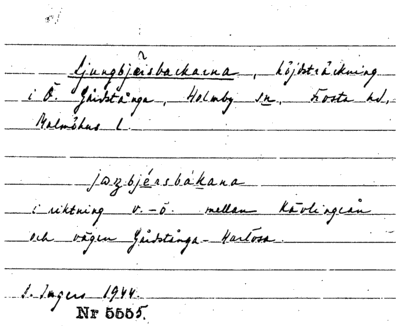 Ljungbjärsbackarna, höjdsträckning
i Ö. Gårdstånga, Holmby sn, Frosta hd,
Malmöhus l.
jɷŋbjérsbákana
i riktning v.-ö. mellan Kävlingeån
och vägen Gårdstånga - Harlösa.
I. Ingers 1944.
Nr 5555.